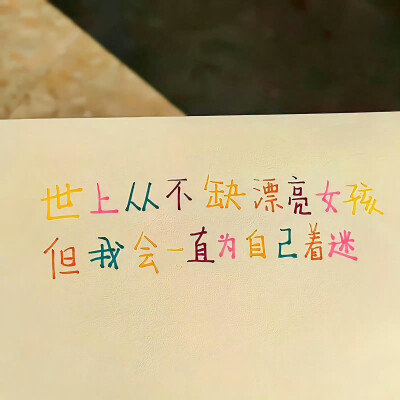 世上从不缺漂亮女孩
但我会一直为自己着迷